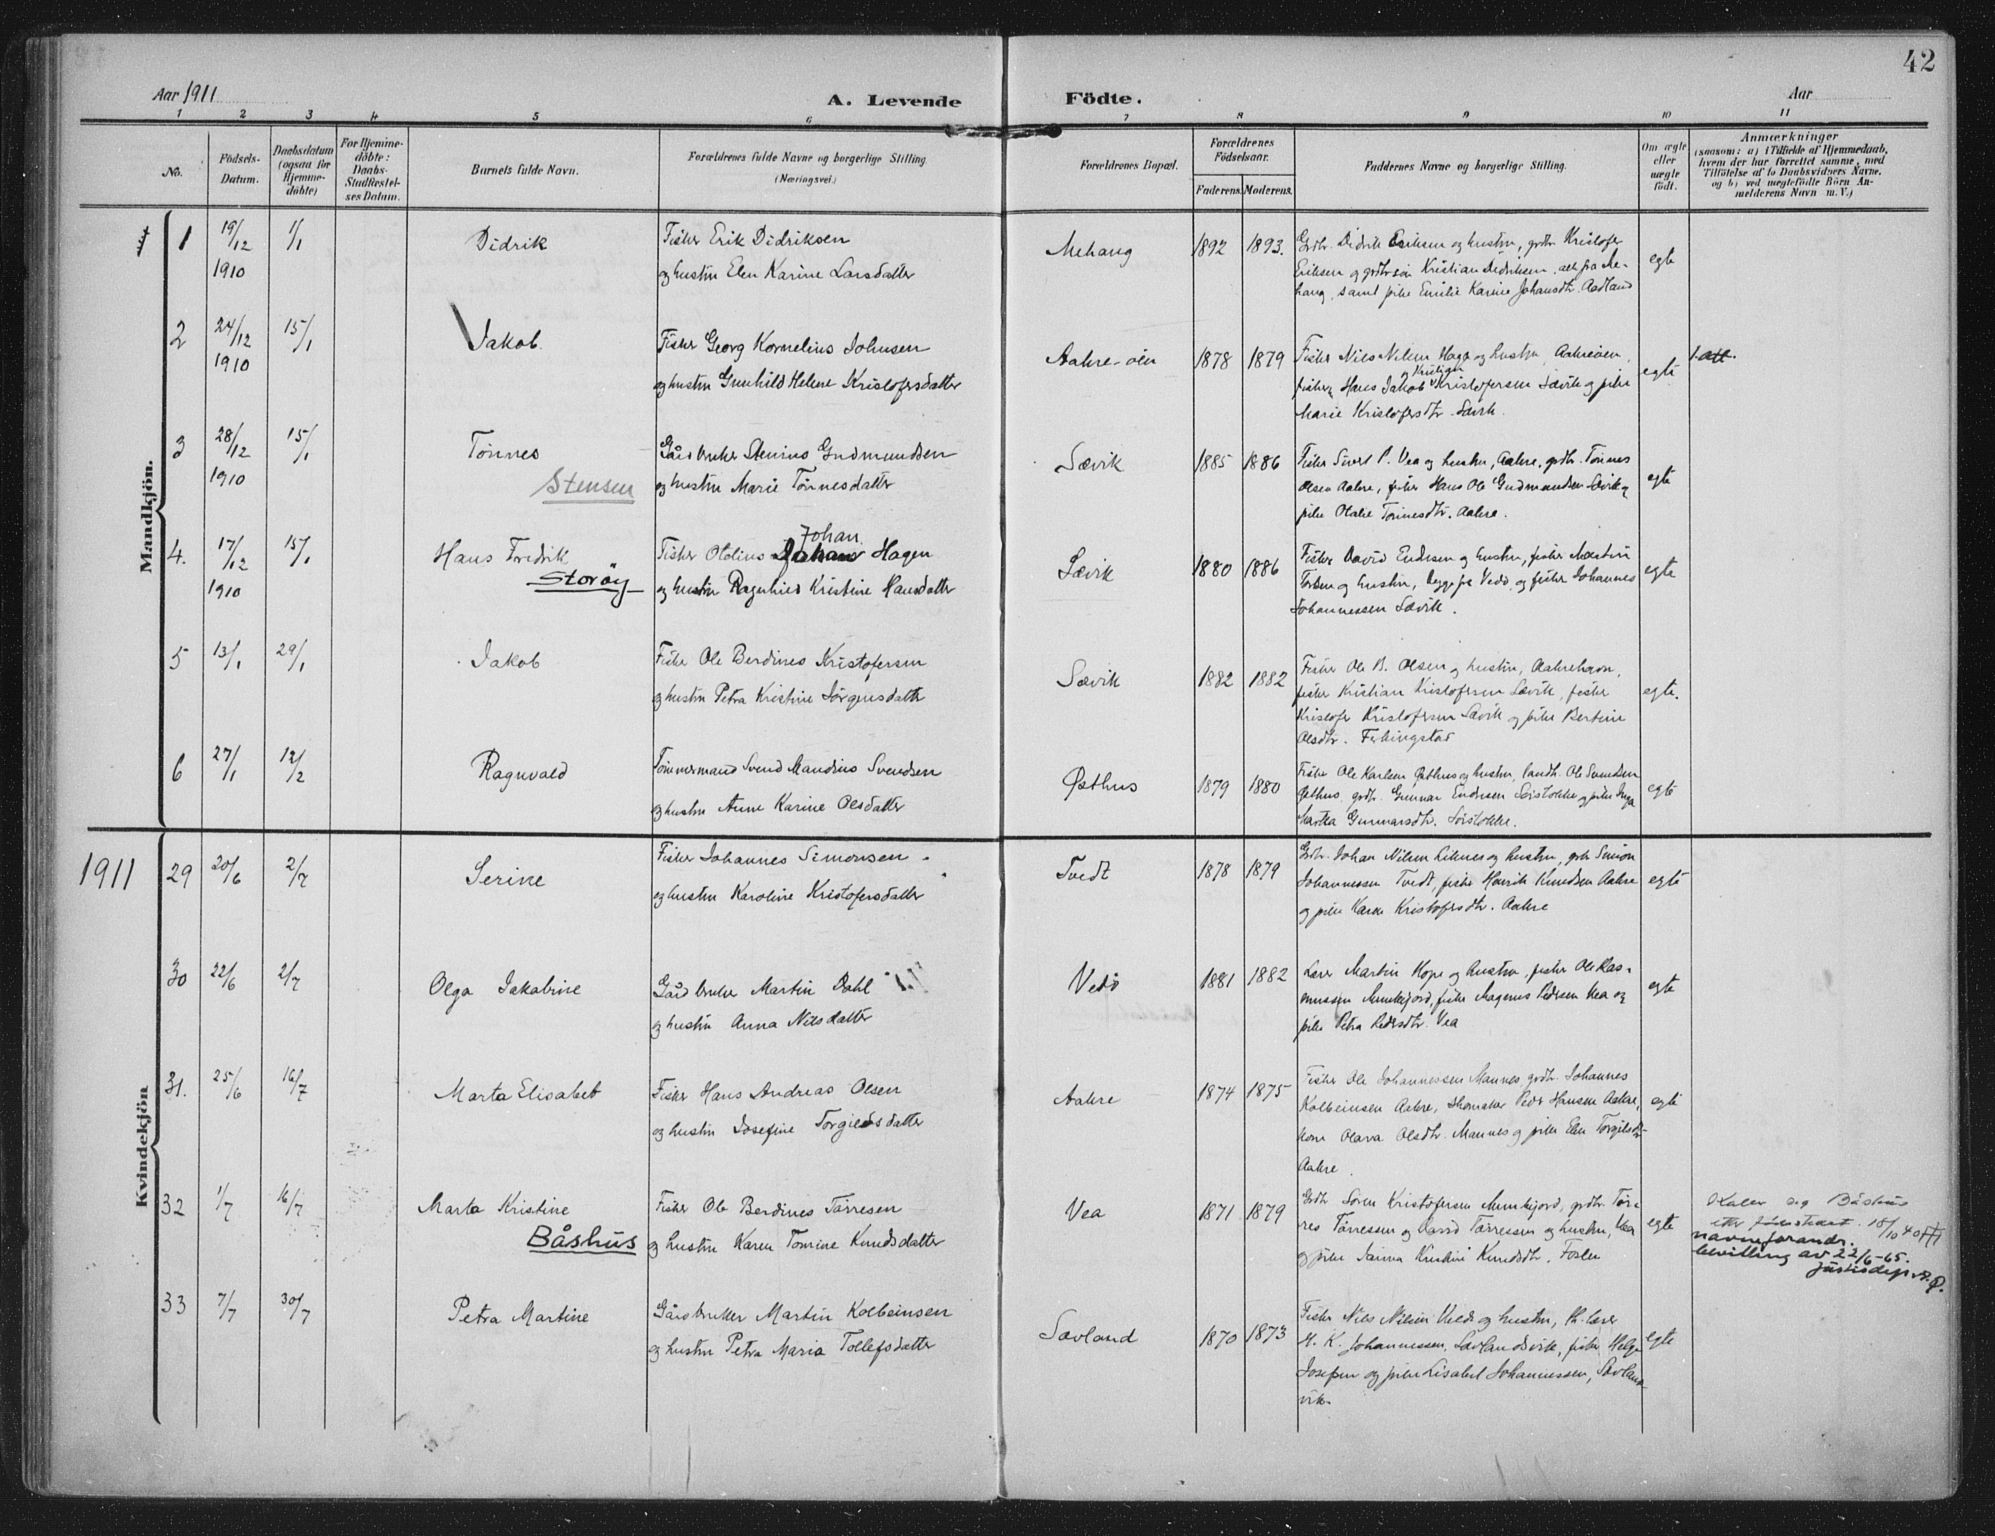 42
Aar 1911
A. Levende
Födte.
Aar
1 2 3 4 5 6 7 8 9 10 11
No.
Födsels-
Datum.
Daabsdatum
(ogsaa for
Hjemme-
döbte)
For Hjemme-
döbte:
Daabs-
Stadfæstel-
ses Datum.
Barnets fulde Navn.
Forældrenes fulde Navne og borgerlige Stilling
(Næringsvei.)
Forældrenes Bopæl.
Forældrenes
Födselsaar.
Faderens. Moderens.
Faddernes Navne og borgerlige Stilling.
Om ægte
eller
uægte
födt.
Anmærkninger
(saasom: a) i Tilfælde af Hjemmedaab,
hvem der har forrettet samme, med
Tilföielse af to Daabsvidners Navne,
og b) ved uægtefödte Börn An-
melderens Navn m. V.)
Mandkjön.
1 19/12 1/1 Didrik Fisker Erik Didriksen Mehaug 1892 1893. Grdbr. Didrik Eriksen og hustru, grdbr Kristofer
1910 og hustru Elen Karine Larsdatter Eriksen og grdbr søn Kristian Didriksen, alle fra Me- egte
haug, samt pike Emilie Karine Johansdtr. Aadland
2 24/12 15/1 Jakob. Fisker Georg Kornelius Johnsen Aakre-øen 1878 1879 Fisker Nils Nilsen Haga og hustru, Aakreøen,
1910 og hustru Gunhild Helene Kristofersdatter fisker Hans Jakob og Kristian Kristofersen Sævik og pike egte 1 att.
Marie Kristofersdtr. Sævik.
3 28/12 15/1 Tönnes Gårdbruker Stenius Gudmundsen Sævik 1885 1886 Fisker Sivert P. Vea og hustru, Aakre, grdbr. Tönnes
1910 Stensen og hustru Marie Tönnesdatter Olsen Aakre, fisker Hans Ole Gudmundsen Sævik og egte
pike Otalie Tönnesdtr. Aakre.
4. 17/12 15/1 Hans Fredrik Fisker Otelius Johan Hagen Sævik 1880 1886 Fisker David Endresen og hustru, fisker Martin egte
1910 Storöy og hustru Ragnhild Kristine Hansdatter og hustru, begge fra Vedø, og fisker Johannes
Johannessen Sævik.
5 13/1 29/1 Jakob Fisker Ole Berdines Kristofersen Sævik 1882 1882 Fisker Ole B. Olsen og hustru, Aakrehavn,
og hustru Petra Kristine Jörgensdatter fisker Kristian Kristofersen Sævik, fisker egte.
Kristofer Kristofersen Sævik og pike Bertine
Olsdtr. Ferkingstad
6 27/1 12/2 Ragnvald Tömmermand Svend Mandius Svendsen Østhus 1879 1880 Fisker Ole Karlsen Østhus og hustru, landh. Ole Svendsen egte
og hustru Anne Karine Olsdatter Østhus, grdbr. Gunnar Endresen Sörstokke og pike Inga
Marta Gunnarsdtr. Sörstokke.
Kvindekjön
1911 29 20/6 2/7 Serine Fisker Johannes Simonsen Tvedt 1878 1879 Grdbr. Johan Nilsen Liknes og hustru, grdbr Simon
og hustru Karoline Kristofersdatter Johannessen Tvedt, fisker Henrik Knudsen Aakre egte
og pike Karen Kristofersdtr. Aakre
30 22/6 2/7 Olga Jakobine Gårdbruker Martin Dahl Vedø 1881 1882 Lærer Martin Hope og hustru, fisker Ole Ras-
og hustru Anna Nilsdatter mussen Munkejord, fisker Magnus Pedersen Vea og egte
pike Petra Pedersdtr. Vea
31. 25/6 16/7 Marta Elisabet Fisker Hans Andreas Olsen Aakre 1874 1875 Fisker Ole Johannessen Mannes, grdbr. Johannes
og hustru Josefine Torgilsdatter Kolbeinsen Aakre, skomaker Peder Hansen Aakre, egte
kone Olava Olsdtr. Mannes og pike Elen Torgilsdtr
Aakre.
32 1/7 16/7 Marta Kristine Fisker Ole Berdines Törresen Vea 1871 1879 Grdbr Sören Kristofersen Munkejord, grdbr. Tör-
Båshus og hustru Karen Tomine Knudsdatter res Törressen og David Törressen og hustru, Vea egte
og pike Kristine Knudsdtr.
Kaller sig Båshus
18/10 40
navneforandr.
bevilling av 22/6-65.
justisdep.
33 7/7 30/7 Petra Martine Gårdbruker Martin Kolbeinsen Sævland 1870 1873 Fisker Nils Nilsen og hustru, lærer
og hustru Petra Maria Tollefsdatter H. K. Johannessen, Sævlandsvik, fisker Helge egte
Josefsen og pike Lisabet Johannessen, Sævlands-
vik.